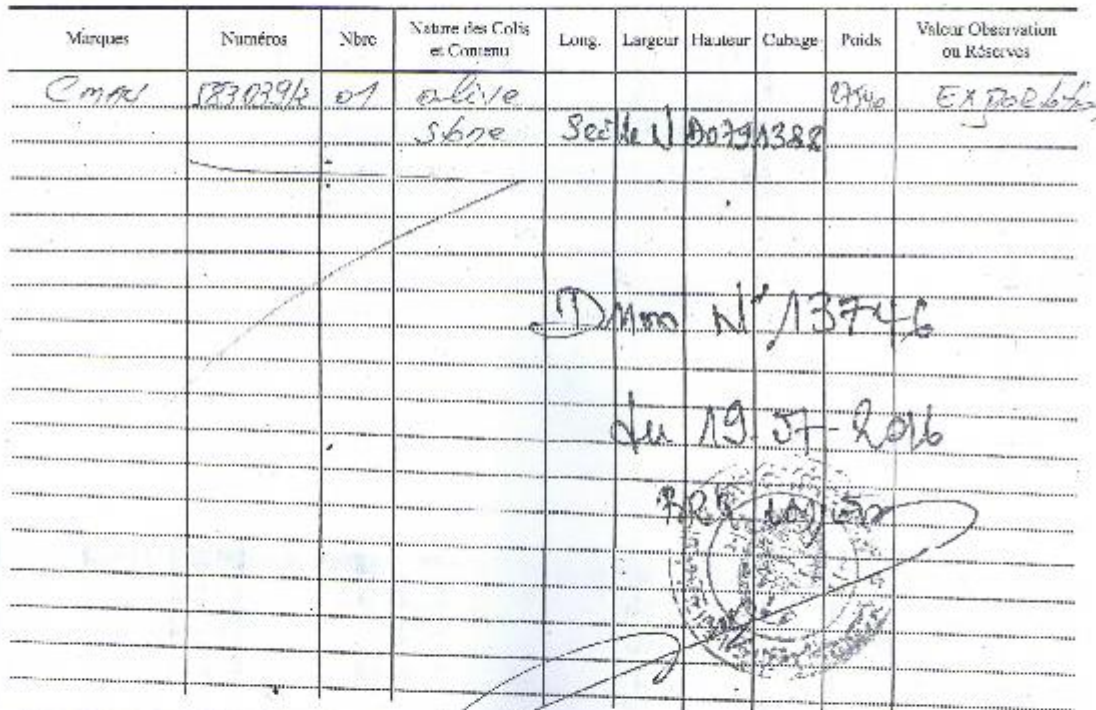 Marques Numéros Nbre Nature des Colis et Contenu Long. Largeur Hauteur Cubage Poids Valeur Observation ou Réserves
CMAU 583039/2 01 olive 27540 Exportation
stone Scelle N 00791388
Dmm N° 13746
du 19-07-2016